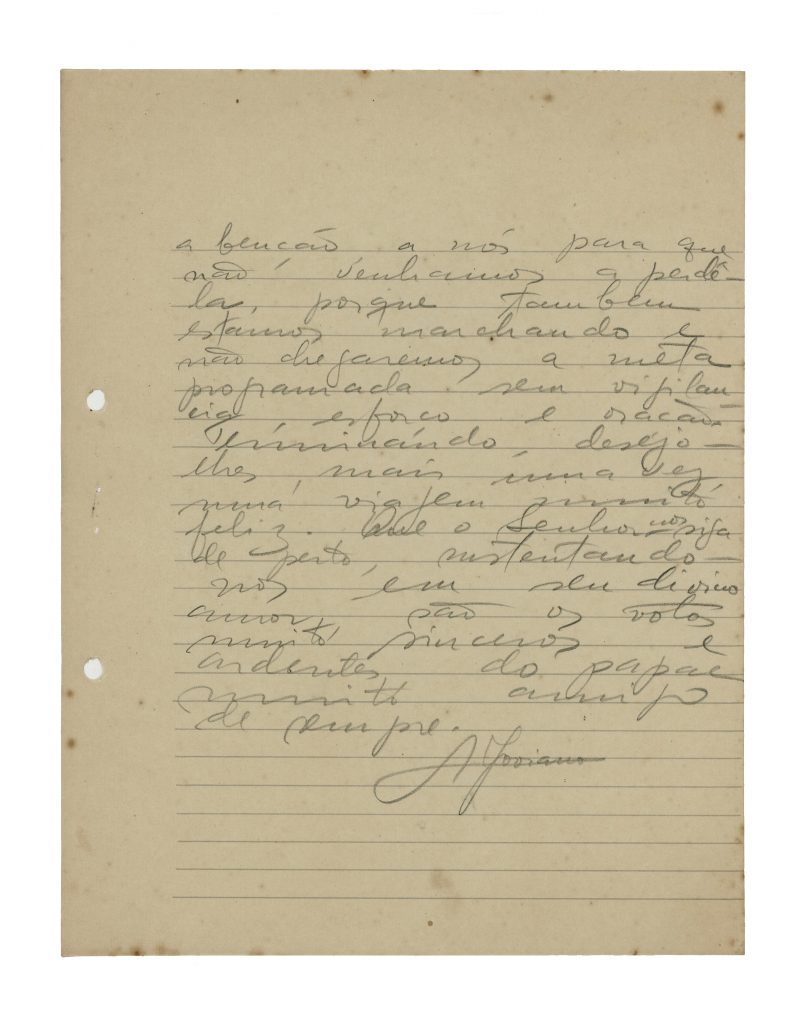 a bencão a nós para que
não venhamos a perdê-
la, porque tambem
estamos marchando e
não chegaremos a méta
programada sem vigilan
cia, esforco e oracão.
Terminando, desejo-
lhes, mais uma vez
uma viagem muito
feliz. Que o Senhor nos siga
de perto, sustentando-
nos em seu divino
amor, são os votos
muito sinceros e
ardentes do papae
muito amigo
de sempre.
A Joviano